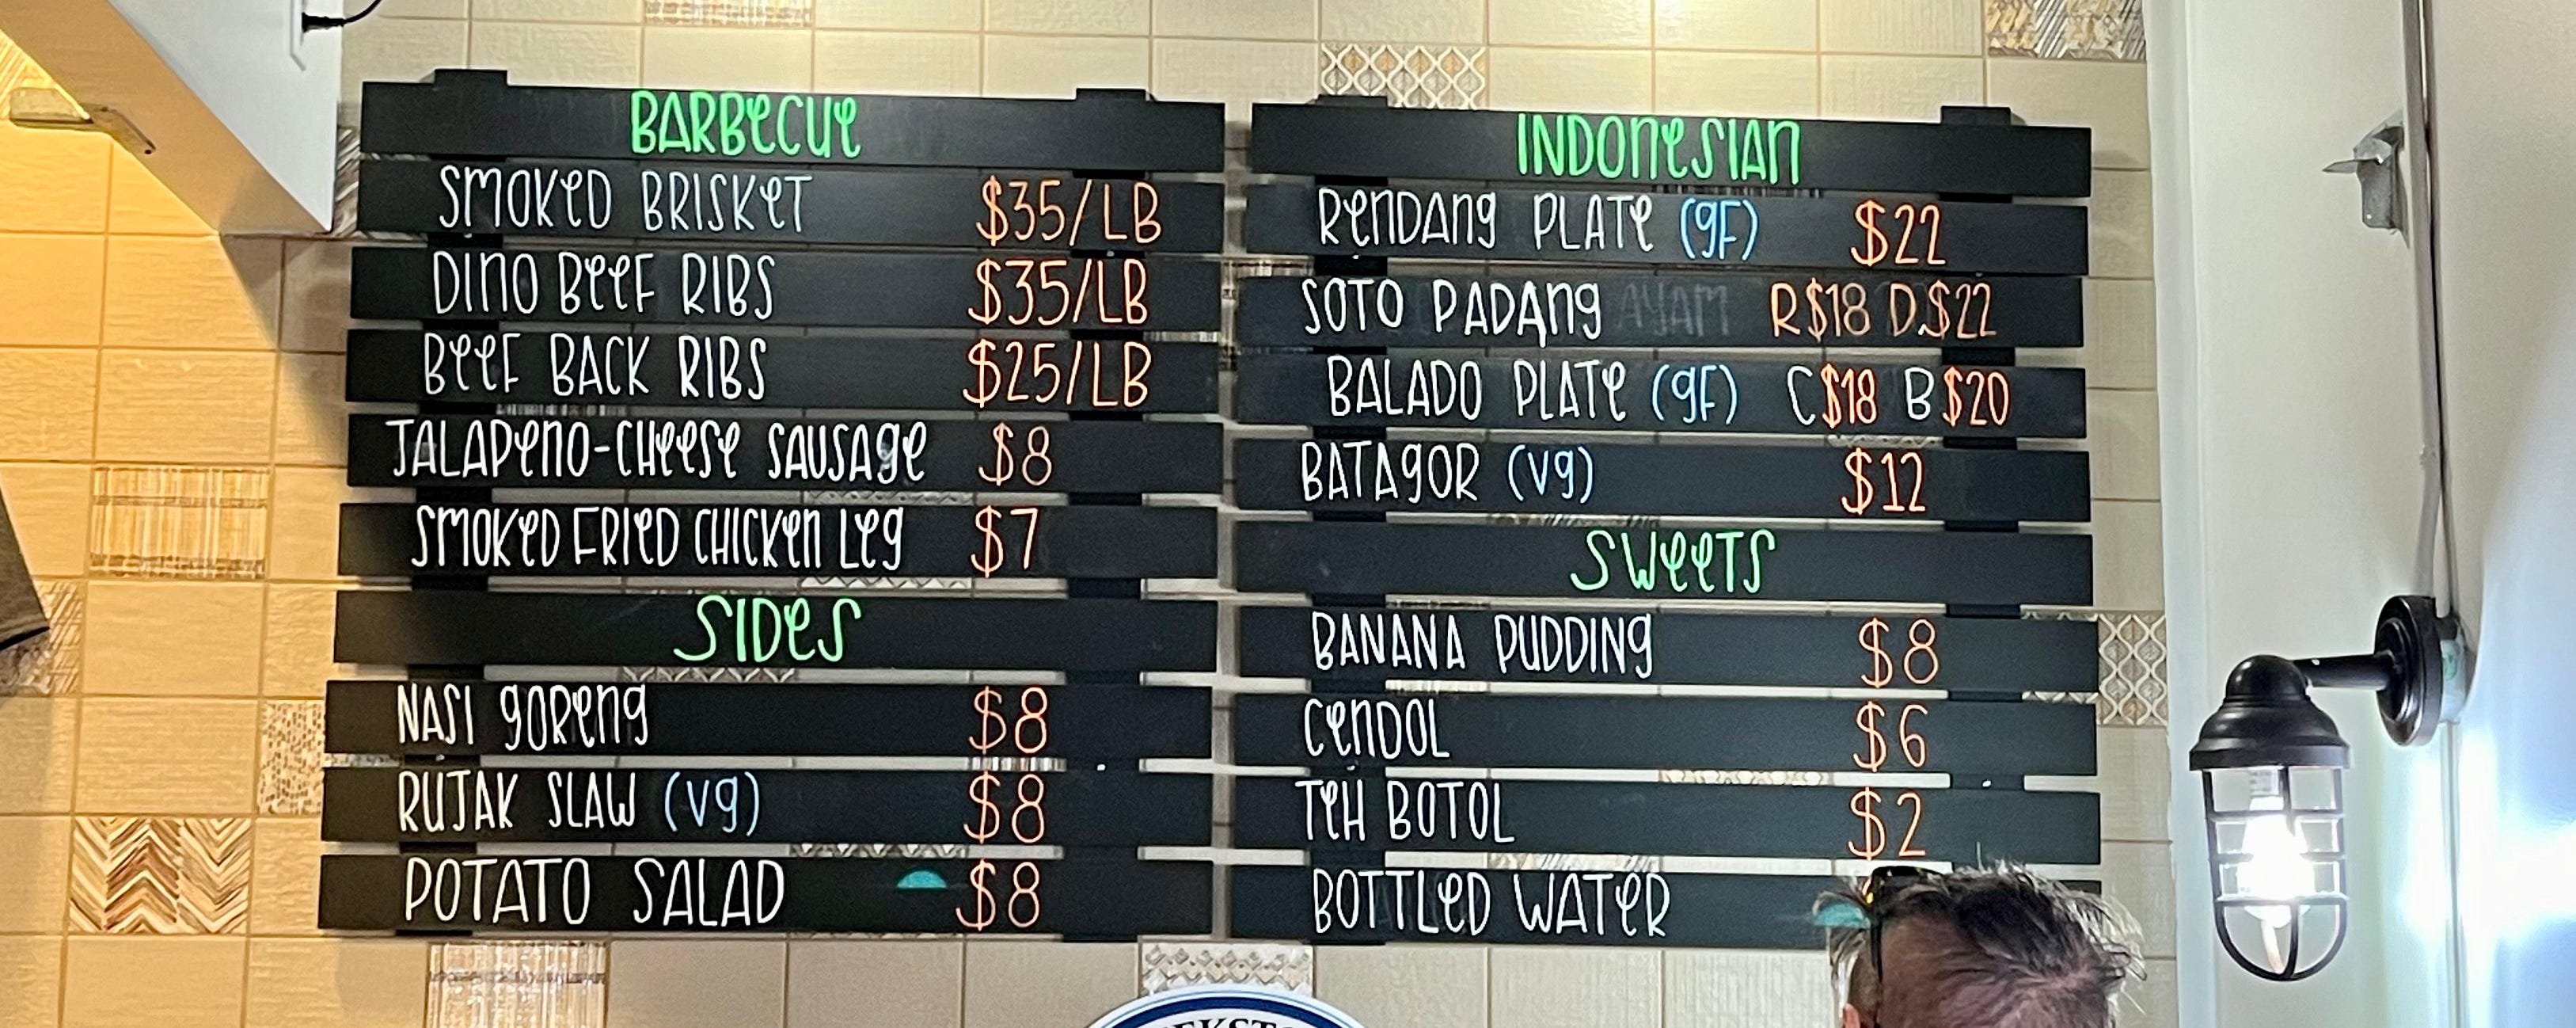 BARBECUE
SMOKED BRISKET $35/LB
DINO BEEF RIBS $35/LB
BEEF BACK RIBS $25/LB
JALAPENO-CHEESE SAUSAGE $8
SMOKED FRIED CHICKEN LEG $7
SIDES
NASI GORENG $8
RUJAK SLAW (Vg) $8
POTATO SALAD $8
INDONESIAN
RENDANG PLATE (gF) $22
SOTO PADANG AYAM R $18 D $22
BALADO PLATE (gF) C $18 B $20
BATAGOR (Vg) $12
SWEETS
BANANA PUDDING $8
CENDOL $6
TEH BOTOL $2
BOTTLED WATER